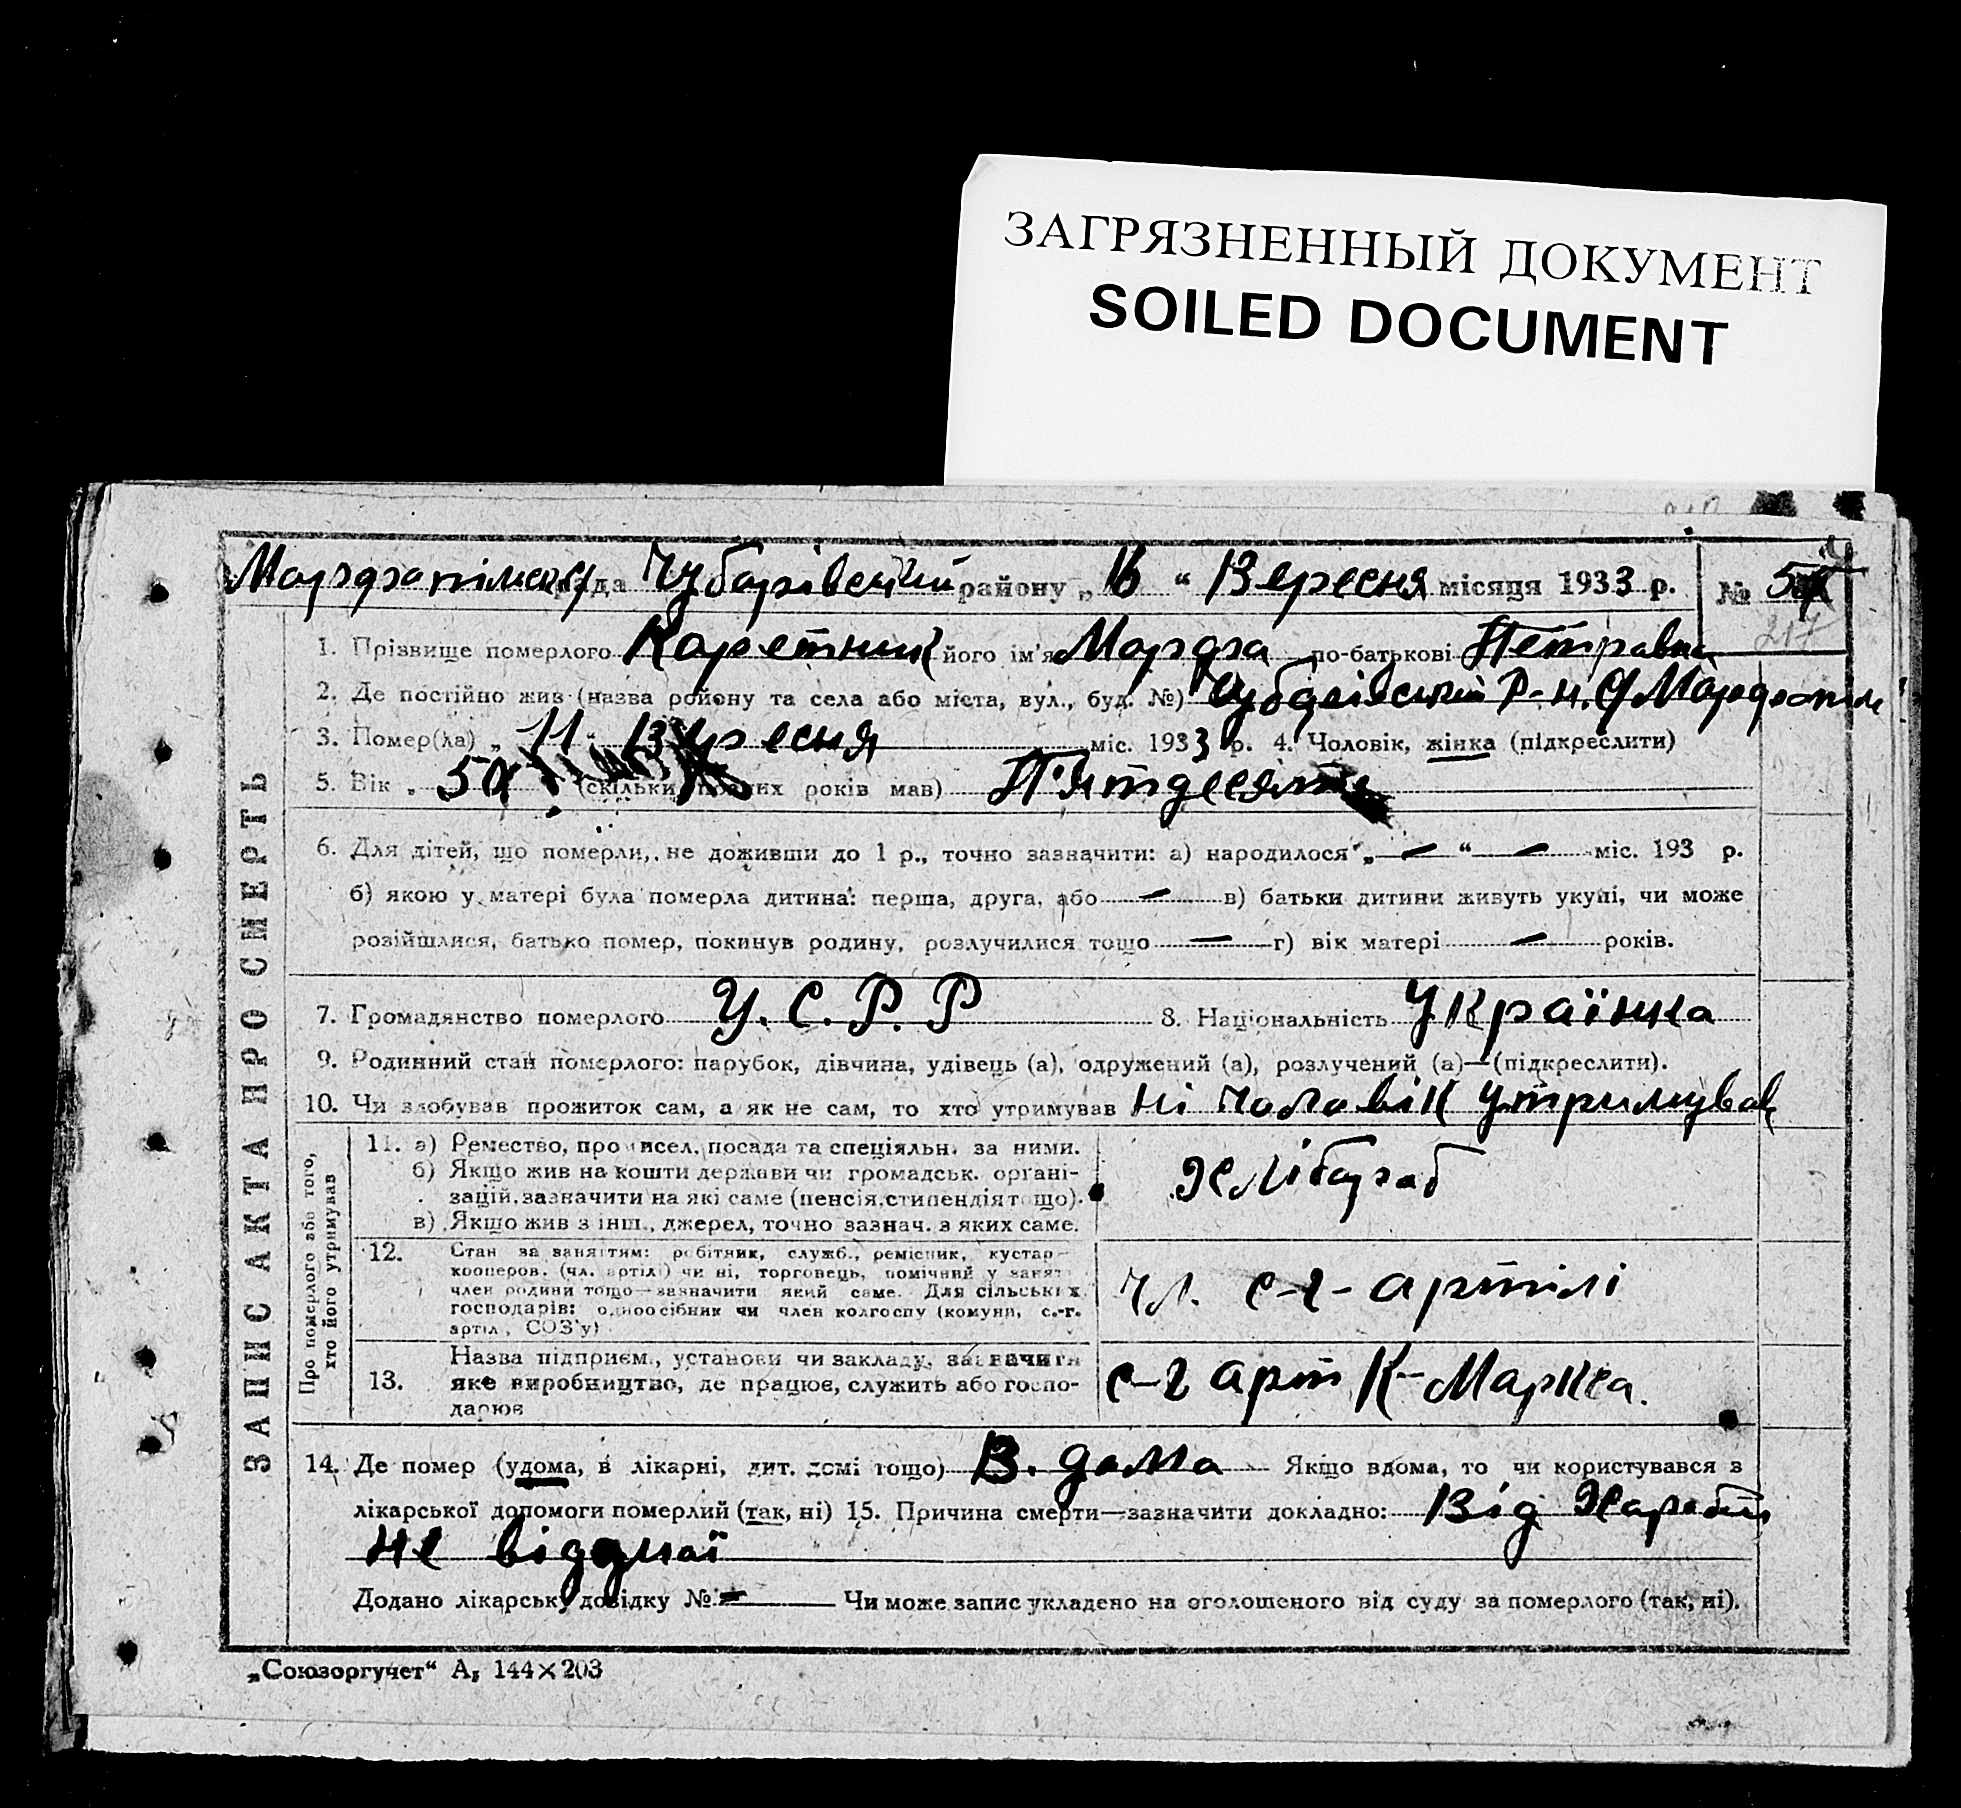 ЗАГРЯЗНЕННЫЙ ДОКУМЕНТ
SOILED DOCUMENT
рада Чубарівський району „ 16 “ Вересня місяця 1933 р. №
217
ЗАПИС АКТА ПРО СМЕРТЬ
1. Прізвище померлого Каретник його ім'я Марфа по-батькові Петравна
2. Де постійно жив (назва району та села або міста, вул., буд. №) Чубарівський Р-н. С
3. Помер(ла) „ 11 “ Вересня міс. 1933 р. 4. Чоловік, жінка (підкреслити)
5. Вік „ 50 (скільки повних років мав) П'ятдесят
6. Для дітей, що померли, не доживши до 1 р., точно зазначити: а) народилося „ — “ — міс. 193 р.
б) якою у матері була померла дитина: перша, друга, або — в) батьки дитини живуть укупі, чи може
розійшлися, батько помер, покинув родину, розлучилися тощо — г) вік матері — років.
7. Громадянство померлого У. С. Р. Р 8. Національність Українка
9. Родинний стан померлого: парубок, дівчина, удівець (а), одружений (а), розлучений (а)—(підкреслити).
10. Чи здобував прожиток сам, а як не сам, то хто утримував Ні чоловік утримував
Про померлого або того, хто його утримував
11. а) Ремество, промисел, посада та спеціяльн. за ними.
б) Якщо жив на кошти держави чи громадськ. органі-
зацій, зазначити на які саме (пенсія, стипендія тощо).
в) Якщо жив з інш., джерел, точно зазнач. з яких саме.
Хлібороб
12. Стан за заняттям: робітник, служб., ремісник, кустар—
кооперов. (чл. артілі) чи ні, торговець, помічний у занят.
член родини тощо—зазначити який саме. Для сільських
господарів: одноосібник чи член колгоспу (комуни, с.-г.
артіл, СОЗ'у)
чл. с-г- артілі
13. Назва підприєм., установи чи закладу, зазначити
яке виробництво, де працює, служить або госпо-
дарює
с-г арт К-Маркса.
14. Де помер (удома, в лікарні, дит. домі тощо) В. дома Якщо вдома, то чи користувався з
лікарської допомоги померлий (так, ні) 15. Причина смерти—зазначити докладно: Від
не
Додано лікарську довідку № — Чи може запис укладено на оголошеного від суду за померлого (так, ні).
„Союзоргучет“ А₅ 144×203